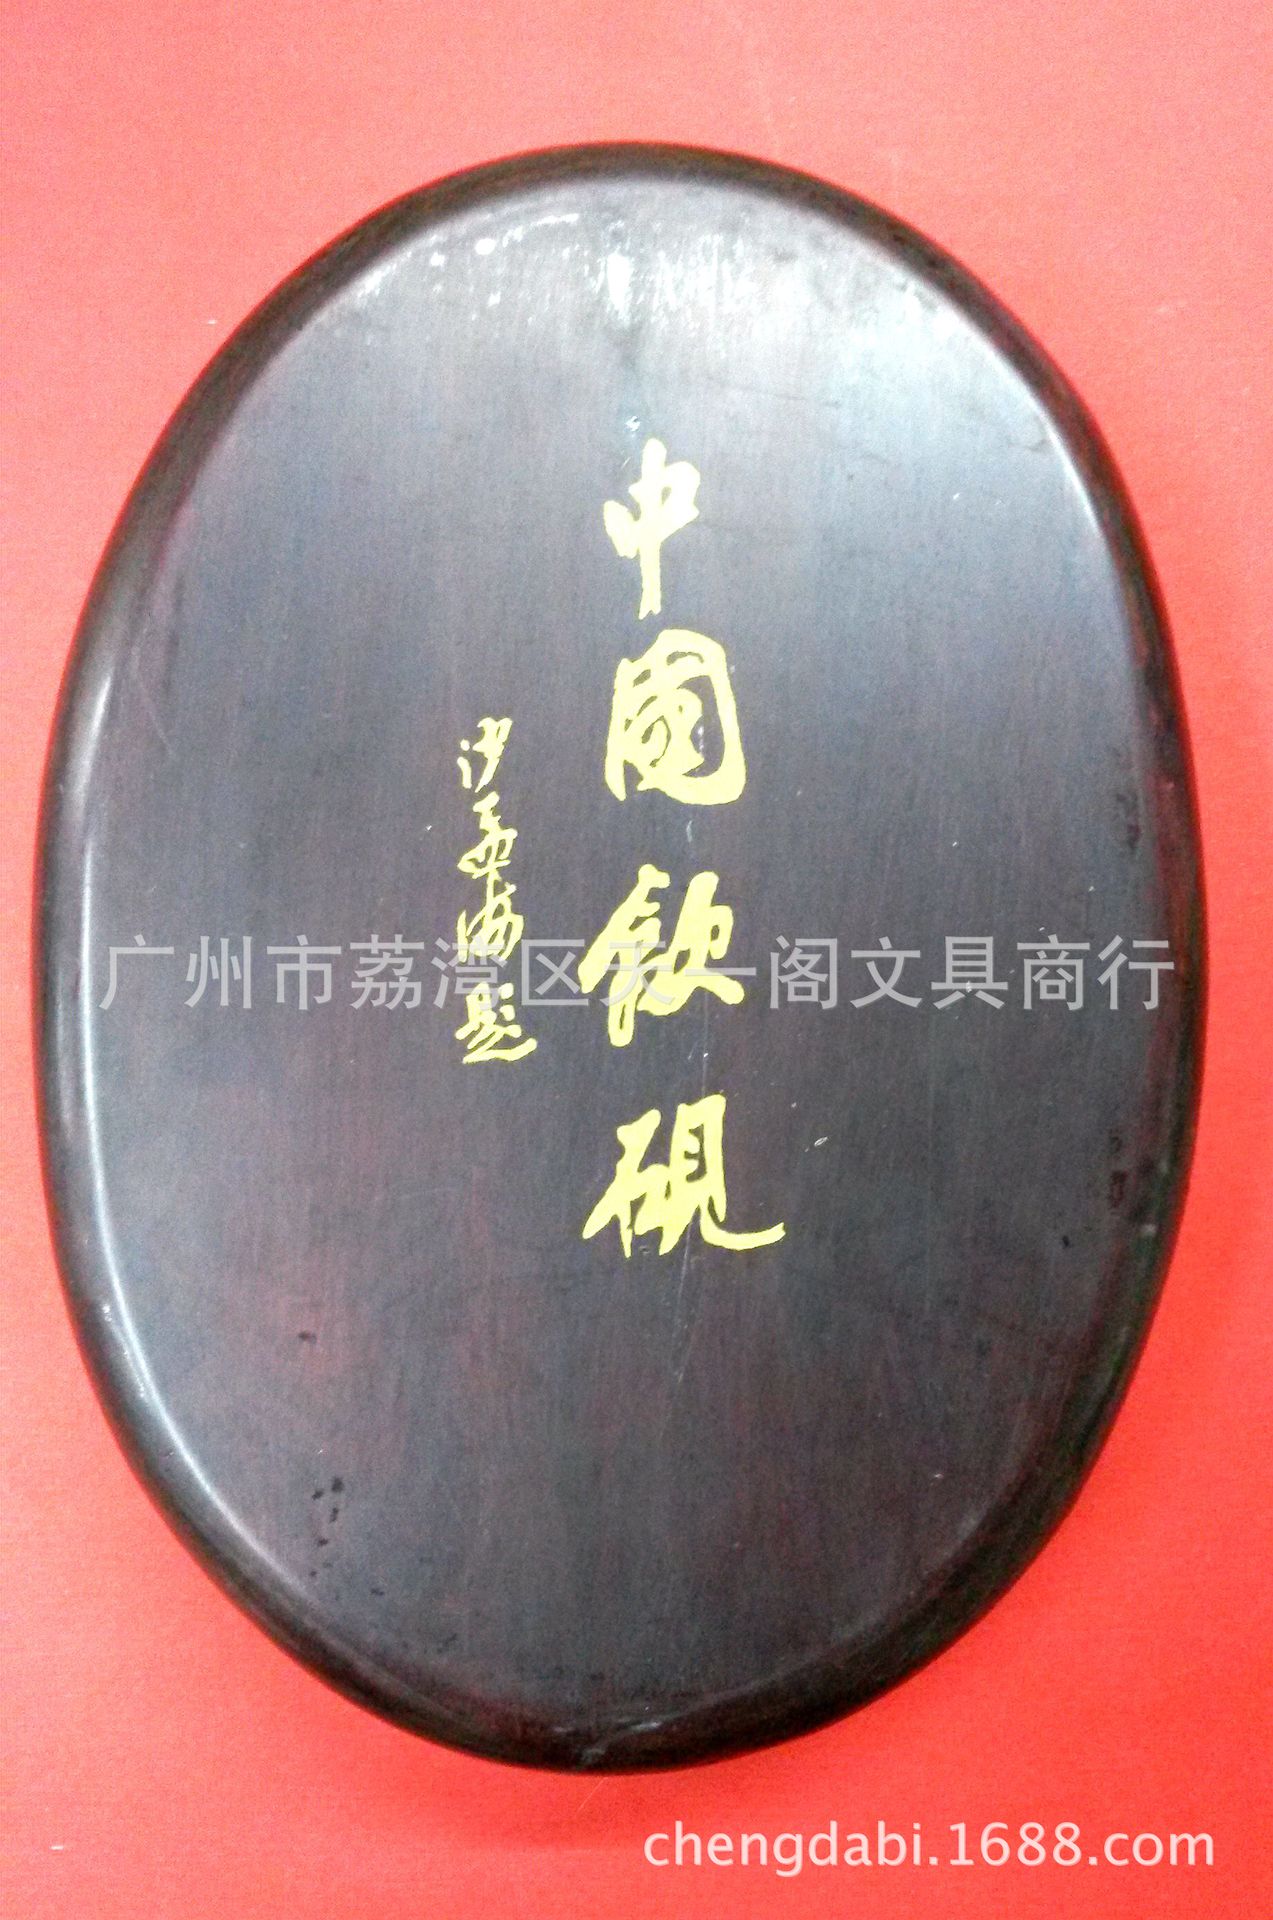 中國歙硯
沙孟海題
广州市荔湾区天一阁文具商行
chengdabi.1688.com